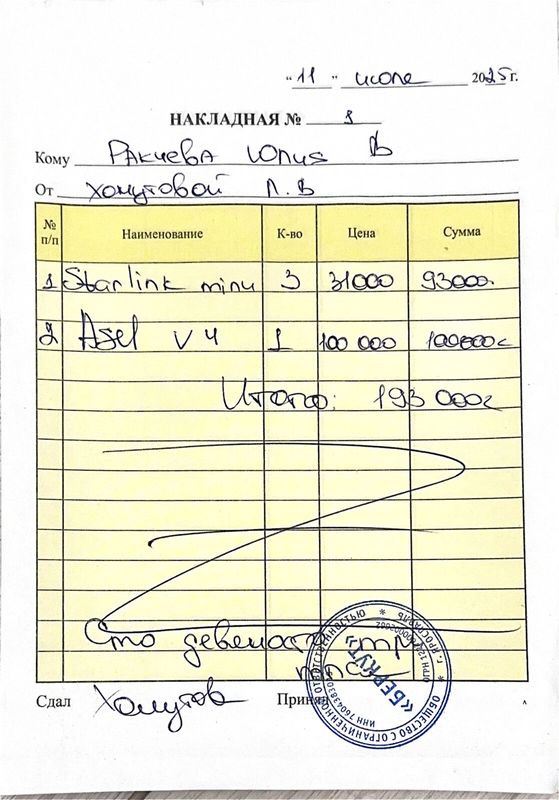 "11" июле 2025 г.
НАКЛАДНАЯ № 1
Кому Ракчева Юлия В
От Хомутовой Л.В
№ п/п Наименование К-во Цена Сумма
1 Starlink mini 3 31000 93000
2 Asel V 4 1 100 000 100000
Итого: 193 000
Сто девеносто три
тыс
Сдал Хомутов Принял
ОБЩЕСТВО С ОГРАНИЧЕННОЙ ОТВЕТСТВЕННОСТЬЮ * г. ЯРОСЛАВЛЬ *
«БЕРКУТ»